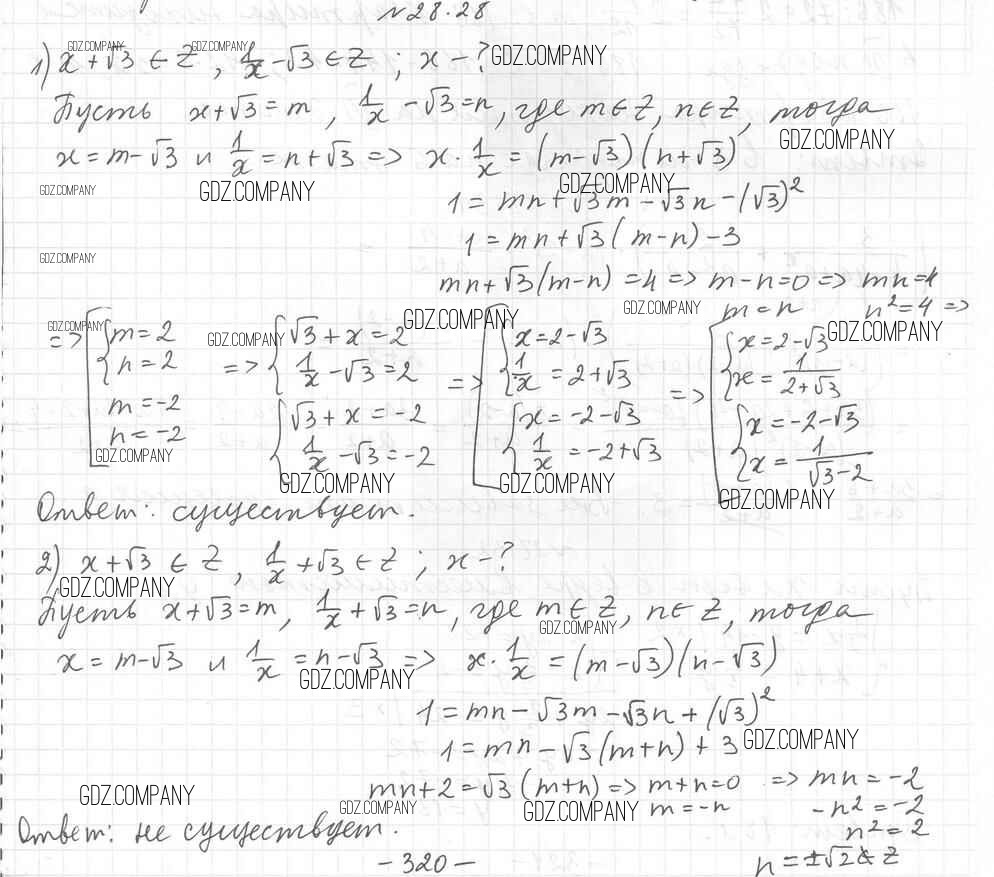 №28.28
1) x+√3 ∈ Z, 1/x - √3 ∈ Z; x - ? GDZ.COMPANY
GDZ.COMPANY GDZ.COMPANY
Пусть x+√3 = m, 1/x - √3 = n, где m ∈ Z, n ∈ Z, тогда
GDZ.COMPANY
x = m-√3 и 1/x = n+√3 => x · 1/x = (m-√3)(n+√3)
GDZ.COMPANY GDZ.COMPANY GDZ.COMPANY
1 = mn+√3m - √3n - (√3)²
1 = mn+√3(m-n) - 3
GDZ.COMPANY
mn+√3(m-n) = 4 => m-n=0 => mn=4
GDZ.COMPANY m = n n²=4 =>
GDZ.COMPANY GDZ.COMPANY GDZ.COMPANY GDZ.COMPANY
=> [ { m=2 => { √3+x=2 => [ { x=2-√3 => [ { x=2-√3
n=2 1/x - √3=2 1/x = 2+√3 x = 1/(2+√3)
m=-2 { √3+x=-2 { x=-2-√3 { x=-2-√3
n=-2 1/x - √3=-2 1/x = -2+√3 x = 1/(√3-2)
GDZ.COMPANY GDZ.COMPANY GDZ.COMPANY GDZ.COMPANY
Ответ: существует.
2) x+√3 ∈ Z, 1/x + √3 ∈ Z; x - ?
GDZ.COMPANY
Пусть x+√3=m, 1/x + √3=n, где m ∈ Z, n ∈ Z, тогда
GDZ.COMPANY
x = m-√3 и 1/x = n-√3 => x · 1/x = (m-√3)(n-√3)
GDZ.COMPANY
1 = mn - √3m - √3n + (√3)²
1 = mn - √3(m+n) + 3 GDZ.COMPANY
mn+2 = √3(m+n) => m+n=0 => mn = -2
GDZ.COMPANY GDZ.COMPANY GDZ.COMPANY m = -n -n² = -2
Ответ: не существует. n² = 2
-320- n = ±√2 ∉ Z